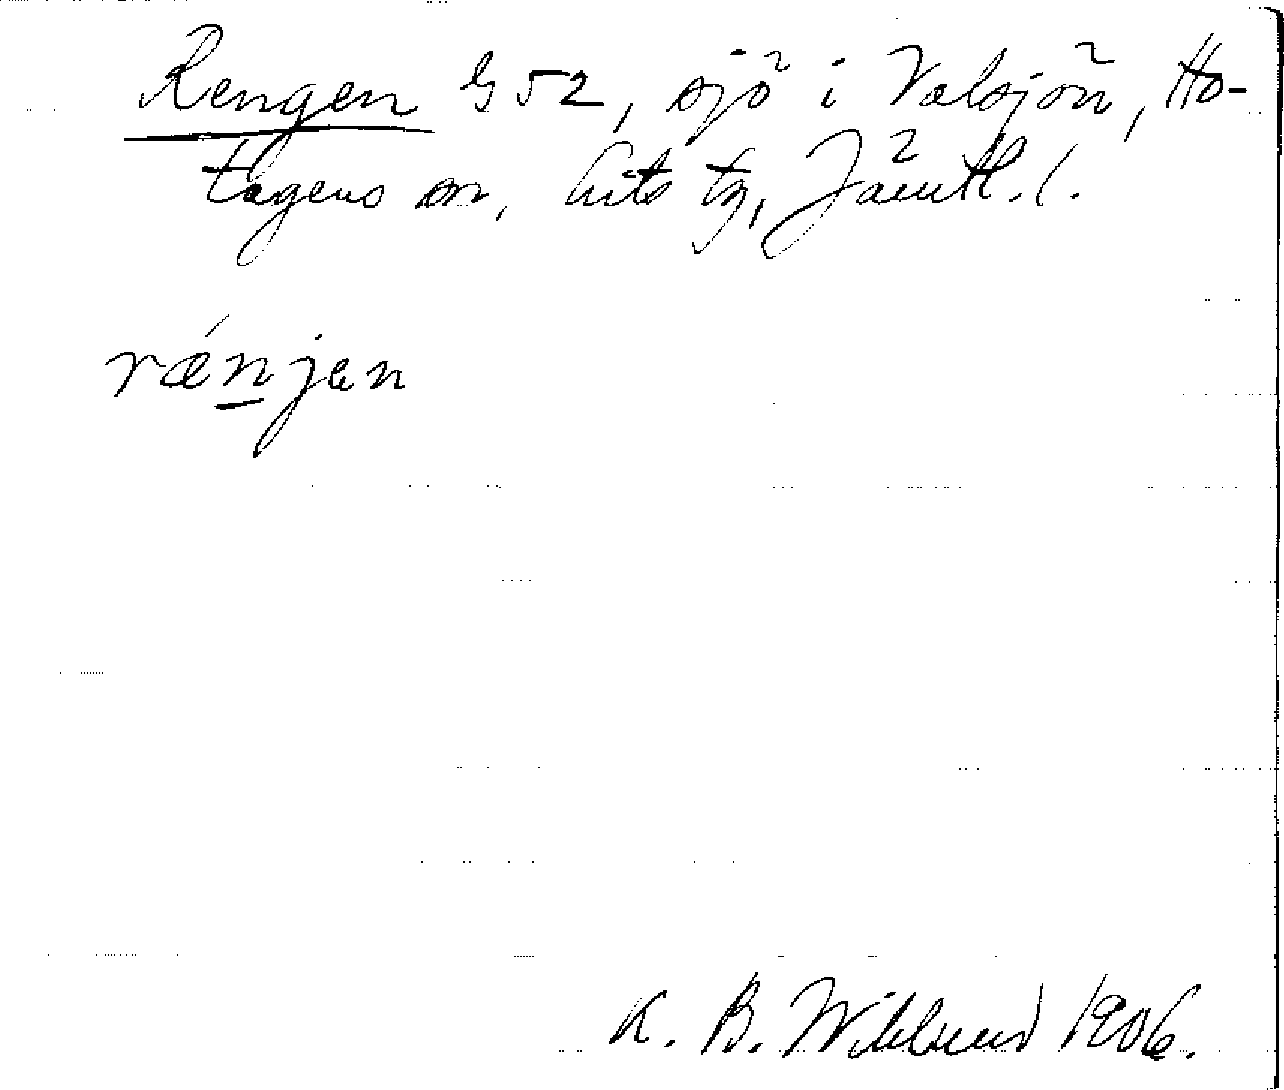 Rengen G 52, sjö i Valsjön, Ho-
tagens sn, Lits tg, Jämtl. l.
rǽn̲jen
K. B. Wiklund 1906.